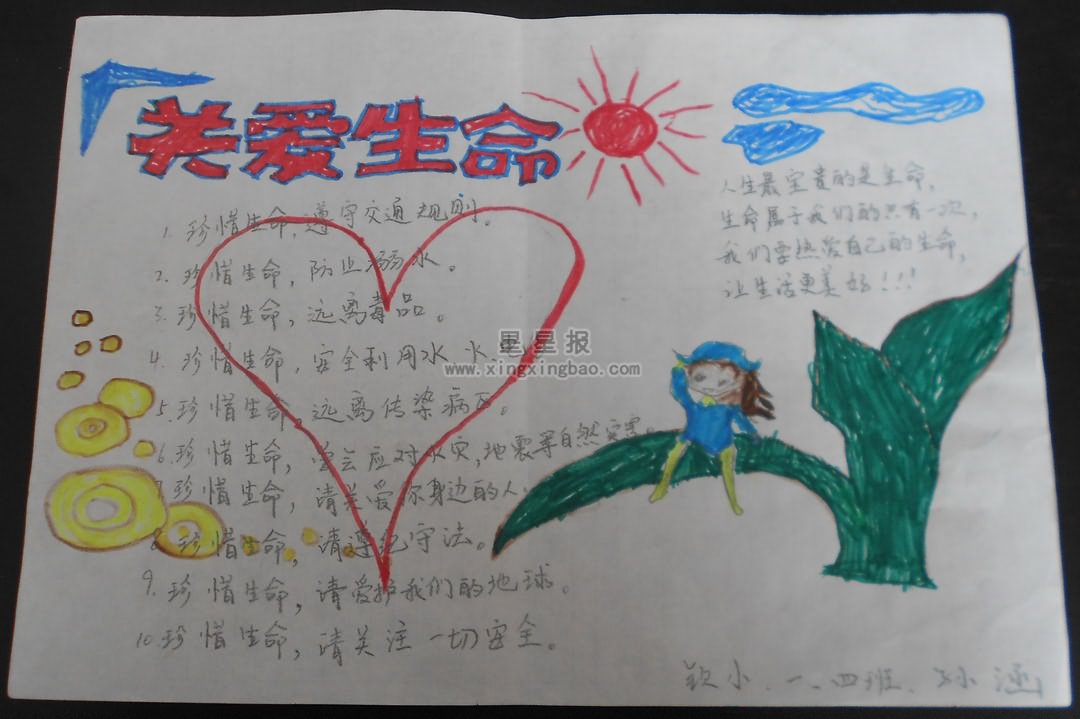 关爱生命
人生最宝贵的是生命，
生命属于我们的只有一次，
我们要热爱自己的生命，
让生活更美好！！！
1. 珍惜生命，遵守交通规则。
2. 珍惜生命，防止溺水。
3. 珍惜生命，远离毒品。
4. 珍惜生命，安全利用水 火
星星报
www.xingxingbao.com
5. 珍惜生命，远离传染病区。
6. 珍惜生命，学会应对水灾，地震等自然灾害。
7. 珍惜生命，请关爱你身边的人
8. 珍惜生命，请遵纪守法。
9. 珍惜生命，请爱护我们的地球。
10. 珍惜生命，请关注一切安全。
小、一、四班、孙涵